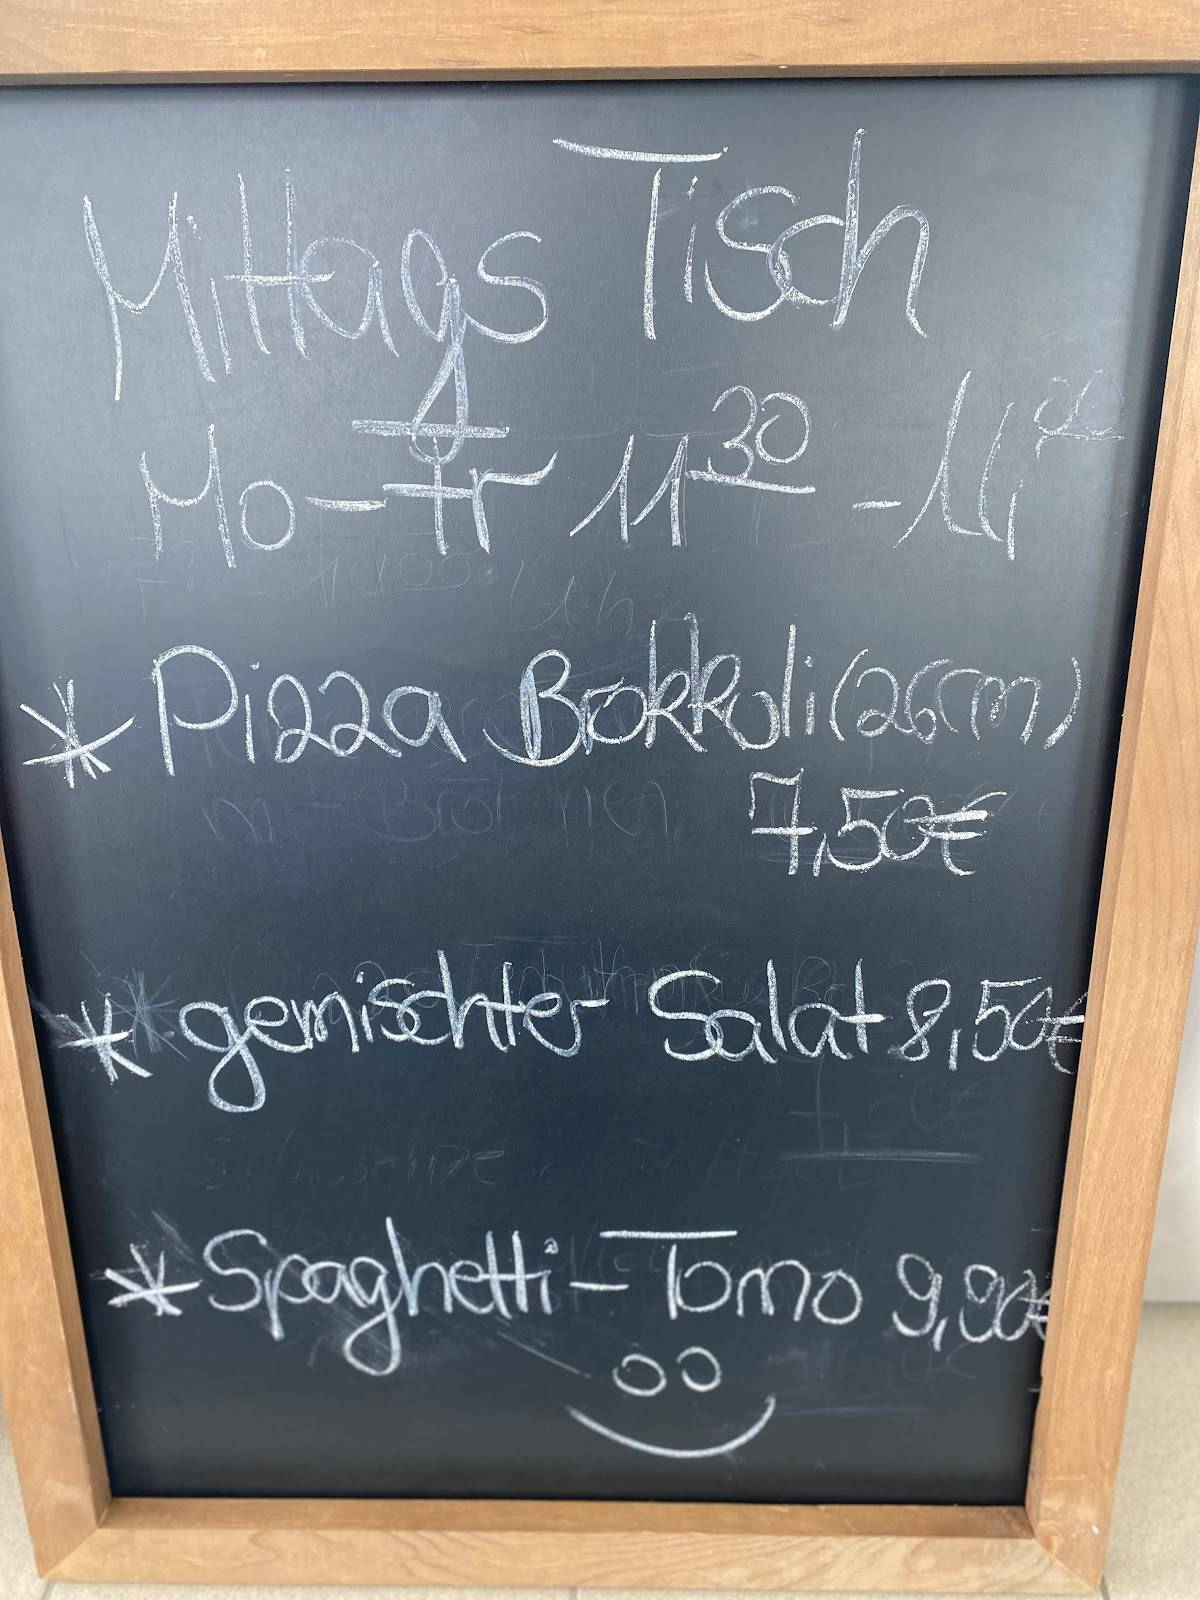 Mittags Tisch
Mo-Fr 11³⁰ - 14⁰⁰
* Pizza Brokkoli (26cm)
7,50€
* gemischter Salat 8,50€
* Spaghetti - Tomo 9,90€